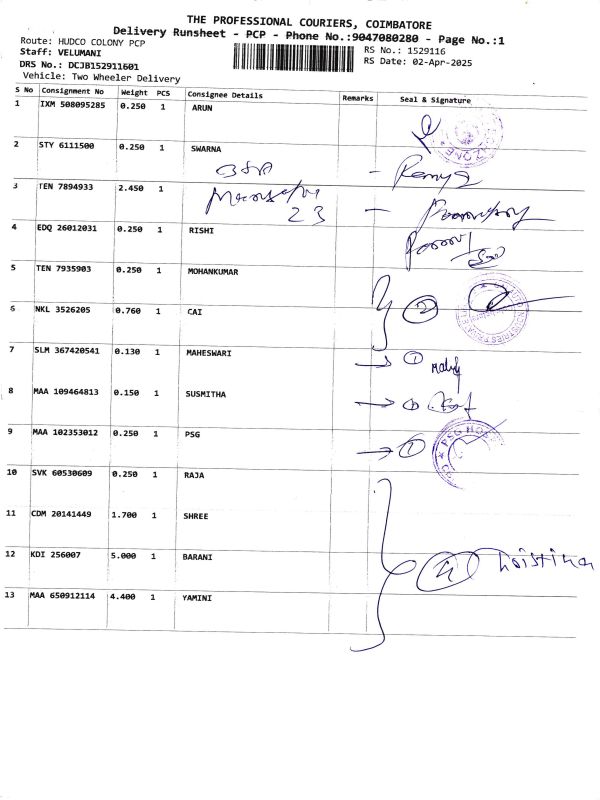 THE PROFESSIONAL COURIERS, COIMBATORE
Delivery Runsheet - PCP - Phone No.:9047080280 - Page No.:1
Route: HUDCO COLONY PCP
RS No.: 1529116
Staff: VELUMANI
RS Date: 02-Apr-2025
DRS No.: DCJB152911601
Vehicle: Two Wheeler Delivery
S No Consignment No Weight PCS Consignee Details Remarks Seal & Signature
1 IXM 508095285 0.250 1 ARUN
2 STY 6111500 0.250 1 SWARNA
Ramya
3 TEN 7894933 2.450 1
23
4 EDQ 26012031 0.250 1 RISHI
5 TEN 7935903 0.250 1 MOHANKUMAR
6 NKL 3526205 0.760 1 CAI
2
7 SLM 367420541 0.130 1 MAHESWARI
1
8 MAA 109464813 0.150 1 SUSMITHA
9 MAA 102353012 0.250 1 PSG
1
PSG HOS
10 SVK 60530609 0.250 1 RAJA
11 CDM 20141449 1.700 1 SHREE
12 KDI 256007 5.000 1 BARANI
4
13 MAA 650912114 4.400 1 YAMINI